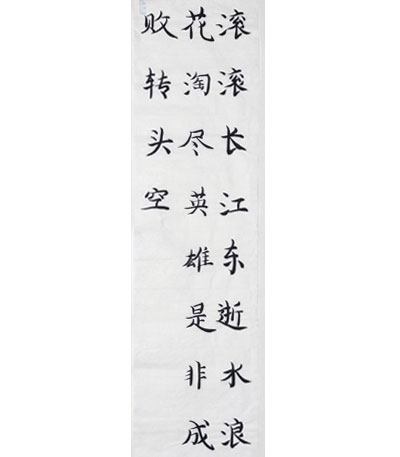 滚滚长江东逝水浪
花淘尽英雄是非成
败转头空